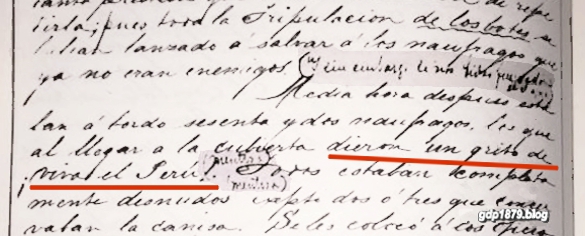 de repe
tirla, pues toda la Tripulacion de los botes se
habian lanzado á salvar á los naufragos que
ya no eran enemigos. (Sin embargo
Media hora despues esta
ban á bordo sesenta y dos naufragos, los que
al llegar a la cubierta dieron un grito de
¡viva el Perú! (mentira) Todos estaban completa
(mentira)
mente desnudos exepto dos ó tres que conser
vaban la camisa. Se les colocó á los
gdp1879.blog